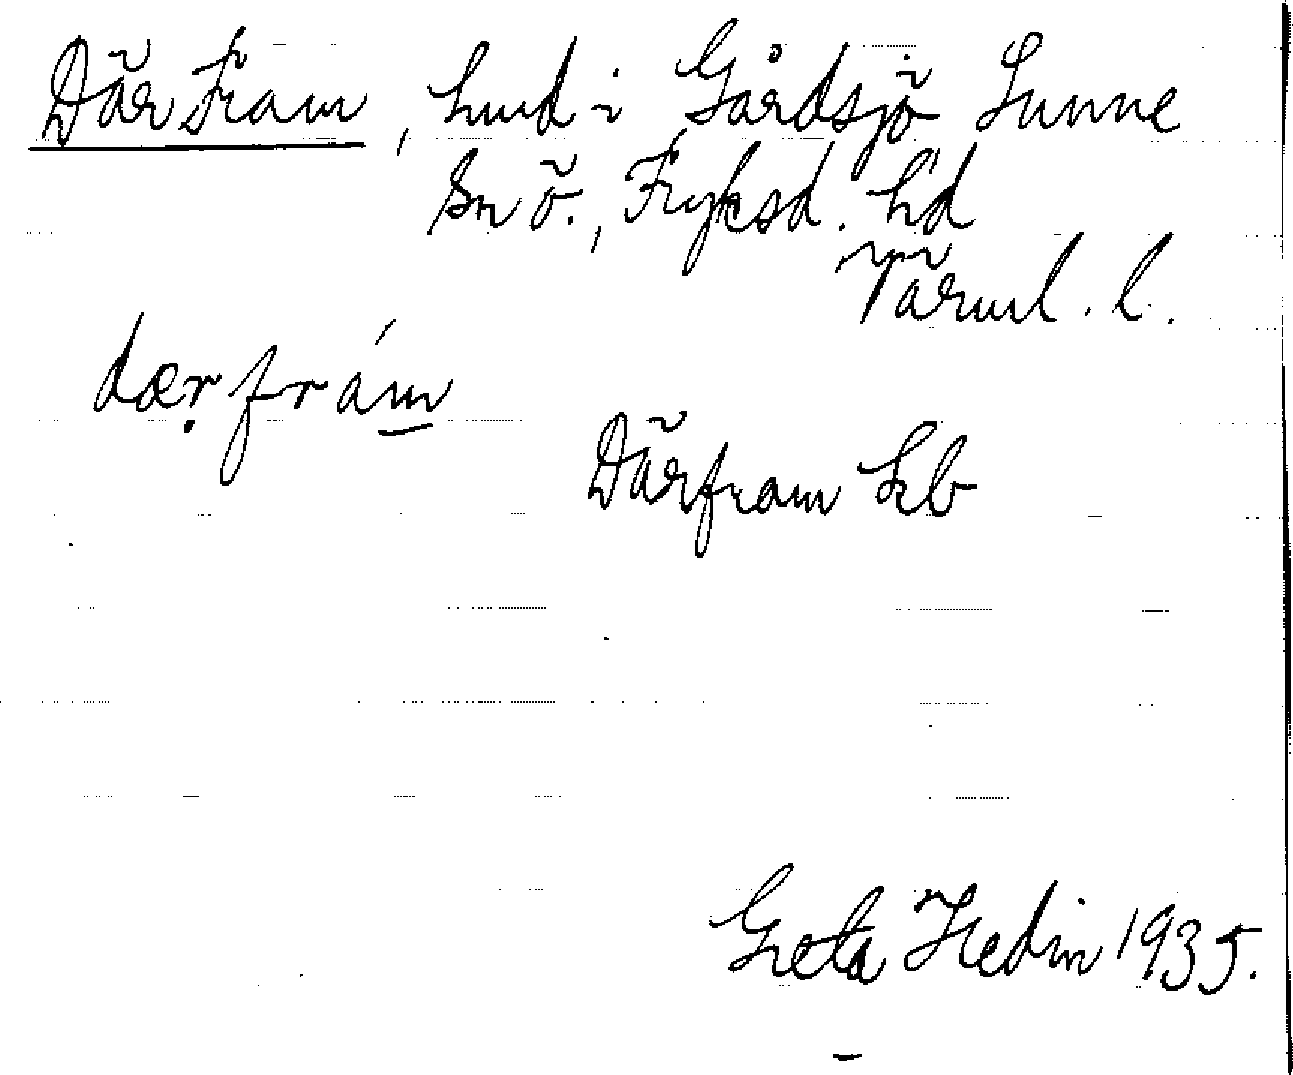 Där Fram, hmd i Gårdsjö Sunne
sn ö., Fryksd. hd
Värml. l.
dærfrám
Därfram Kb
Greta Hedin 1935.